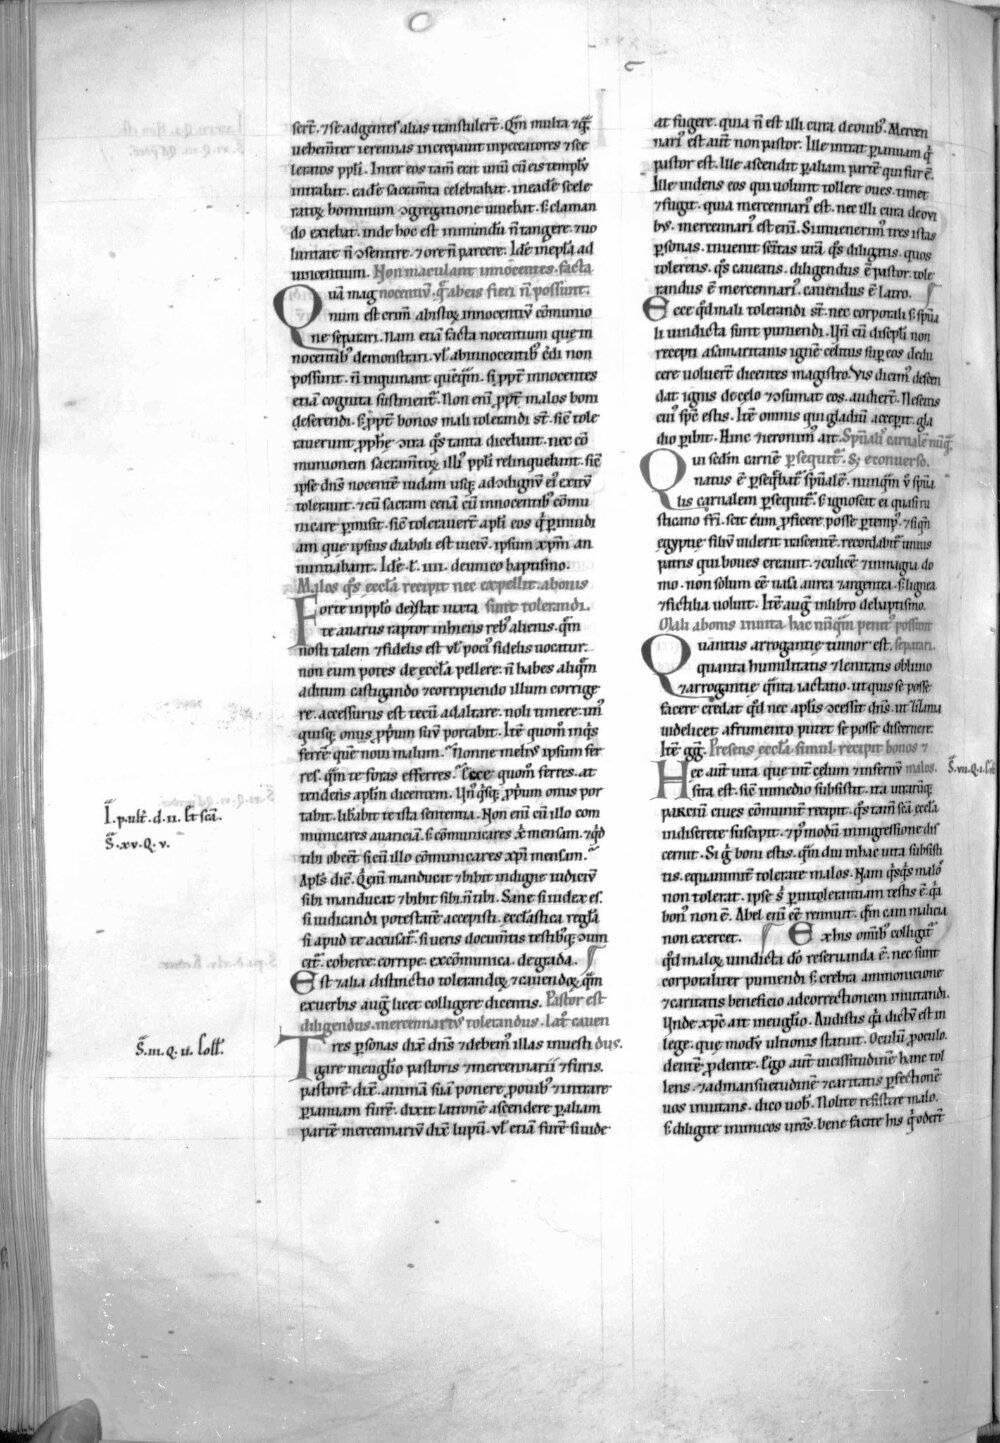 sert̄. ⁊ se ad gentes alias transtulert̄. Qm̄ multa ⁊ q̄
vehem̄ter ieremias increpauit in peccatores ⁊ sce
leratos pp̄li. Inter eos tam̄ erat unū cū eis templū
intrabat. eadē sacram̄ta celebrabat. in eadē scele
ratoꝝ hominum ↄgregatione uiuebat. s; claman
do exiebat. inde hoc est inmundū n̄ tangere. ⁊ uo
luntate n̄ ↄsentire. ⁊ ore n̄ parcere. Idē in ep̄la ad
uincentium. Non maculant innocentes. facta
Quā mag nocentiū. q̄ ab eis fieri n̄ possunt.
num est crim̄ abistoꝝ innocentiū cōmunio
ne separari. Nam etiā facta nocentium que in
nocentibꝰ demonstrari. vl̄ ab innocentibꝰ c̄di non
possunt. n̄ inquinant quēq̄m. si ppt̄ innocentes
etiā cognita sustinent᷑. Non eni᷑ ppt̄ malos boni
deserendi. s; ppt̄ bonos mali tolerandi st̄. sic̄ tole
rauerunt pph̄ę ↄtra q̄s tanta dicebant. nec cō
munionem sacram̄toꝝ illiꝰ pp̄li relinquebant. sic̄
ipse dn̄s nocentē iudam usq; ad ↄdignū eiꝰ exitū
tolerauit. ⁊ eū sacram cenā cū innocentibꝰ cōmu
nicare permisit. sic̄ tolerauert̄ apl̄i eos q̄ p inuidi
am que ipsius diaboli est uiciū. ipsum xp̄m an
nuntiabant. Idē. l. iiii. de unico baptismo.
Malos q̄s eccl̄a recipit nec expellit. a bonis
Forte in pp̄lo dei stat iuxta sunt tolerandi.
te auarus raptor inhiens rebꝰ alienis. q̄m
nosti talem ⁊ fidelis est vl̄ pociꝰ fidelis uocatur.
non eum potes de eccl̄a pellere. n̄ habes aliq̄m
aditum castigando ⁊ corripiendo illum corrige
re. accessurus est tecū ad altare. noli timere. unꝰ
quisq; onus pp̄um suū portabit. Itē quom̄ inq̄s
ferrē quē noui malum. nonne meliꝰ ipsum fer
res. q̄m te foras efferres. Ecce quom̄ ferres. at
tendens apl̄m dicentem. Un̄ q̄sq; pp̄um onus por
tabit. lib̄abit te ista sententia. Non eni᷑ cū illo com
municares auaciā. s; cōmunicares x̄ mensam. ⁊ q̄d
tibi obeēt si cū illo cōmunicares xp̄i mensam.
Apl̄s diē. Q̄ eni᷑ manducat ⁊ bibit indigne iudiciū
sibi manducat ⁊ bibit sibi. n̄ tibi. Sane si iudex es.
si iudicandi potestatē accepisti. eccl̄astica regl̄a
si apud te accusat᷑. si ueris docum̄tis testibꝰq; ↄuin
cit᷑. coherce. corripe. excōmunica. degrada.
Est ⁊ alia distinctio tolerandoꝝ ⁊ cauendoꝝ. q̄m
ex uerbis auḡ licet colligere dicentis. Pastor est
diligendus. mercennariꝰ tolerandus. Lat̄ cauen
Tres p̲sonas dix̄ dn̄s ⁊ debemꝰ illas inuesti dus.
gare in euḡlio pastoris ⁊ mercennarii ⁊ furis.
pastorē dix̄. animā suā ponere p̲ ouibꝰ ⁊ intrare
p̲ ianuam. furē. dixit latronē ascendere p̲ aliam
partē. mercennariū dix̄. lupū. vl̄ etiā furē si uide
at fugere. quia n̄ est illi cura de ouibꝰ. Mercen
nariꝰ est aut̄ non pastor. Ille intrat p̲ ianuam q̄
pastor est. Ille ascendit p̲ aliam partē qui fur ē.
Ille uidens eos qui uolunt tollere oues. timet
⁊ fugit. quia mercennariꝰ est. nec illi cura de oui
bꝰ. mercennariꝰ est eni᷑. Si inuenerimꝰ tres istas
p̲sonas. inuenit sc̄itas ur̄a. q̄s diligatis. quos
toleretis. q̄s caueatis. diligendus ē pastor. tole
randus ē mercennariꝰ. cauendus ē latro.
Ecce q̄d mali tolerandi st̄. nec corporali s; sp̄ua
li uindicta sunt puniendi. Un̄ cū discipl̄i non
recepti a samaritanis ignē celitus sup̲ eos dedu
cere uoluert̄ dicentes magistro. Vis dicimꝰ descen
dat ignis de celo ⁊ ↄsumat eos. audiert̄. Nescitis
cuiꝰ sp̄c estis. Itē omnis qui gladiū accepit. gla
dio p̲ibit. Hinc ⁊ ieronimꝰ ait. Sp̄ualiꝰ carnalē nūq̄.
Qui sed̄m carnē p̲sequit᷑. S; econuerso.
natus ē p̲seq̄bat᷑ sp̄ualē. nunq̄m u᷑ sp̄ua
lis carnalem p̲sequit᷑. s; ignoscit ei quasi ru
sticano fr̄i. scit eum p̲ficere posse p̲ temp̲ꝰ. ⁊ siq̄n
egyptię filiū uiderit nascentē. recordabit᷑ unius
patris qui boues creauit. ⁊ culicē ⁊ in magna do
mo. non solum eē uasa aurea ⁊ argentea. s; lignea
⁊ fictilia uoluit. Itē auḡ in libro de baptismo.
Mali a bonis in uita hac nūq̄m penitꝰ possunt
Quantus arrogantię tumor est. separari.
quanta humilitatis ⁊ lenitatis obliuio
⁊ arrogantię q̄nta iactatio. ut quis se posse
facere credat q̄d nec apl̄is ↄcessit dn̄s. ut lilium
uidelicet a frumento putet se posse discernere.
Itē gg̅. Presens eccl̄a simul recipit bonos ⁊
Hec aut̄ uita que int̄ celum ⁊ infernū malos.
sita est. sic̄ in medio subsistit. ita utrarūq;
partiū ciues cōmunit̄ recipit. q̄s tam̄ sc̄ā eccl̄a
indiscrete suscipit. ⁊ p̲ modū in ingressione dis
cernit. Si q̄ boni estis. q̄m diu in hac uita subsisti
tis. equanimit̄ tolerate malos. Nam q̄sq̄s maloꝰ
non tolerat. ipse s᷑ p̲ intolerantiam testis ē. q̄a
bonꝰ non ē. Abel eni᷑ eē rennuit. q̄m cain malicia
non exercet. Ex his om̄ibꝰ colligit᷑
q̄d maloꝝ uindicta dō reseruanda ē. nec sunt
corporaliter puniendi. s; crebra ammonicione
⁊ caritatis beneficio ad correctionem inuitandi.
Unde xp̄c ait in euḡlio. Audistis q̄a dictū est in
lege. que modū ultionis statuit. Oculū p̲ oculo.
dentē p̲ dente. Ego aut̄ uicissitudinē hanc tol
lens. ⁊ ad mansuetudinē ⁊ caritatis p̲fectionē
uos inuitans. dico uob̄. Nolite resistere malo.
s; diligite inimicos ur̄os. bene facite his q̄ odert̄
I. p. ult̄. d. ii. Et sc̄a.
S̄. xv. Q. v.
S̄. iii. Q. ii. Toll̄.
S̄. vii. Q. i.